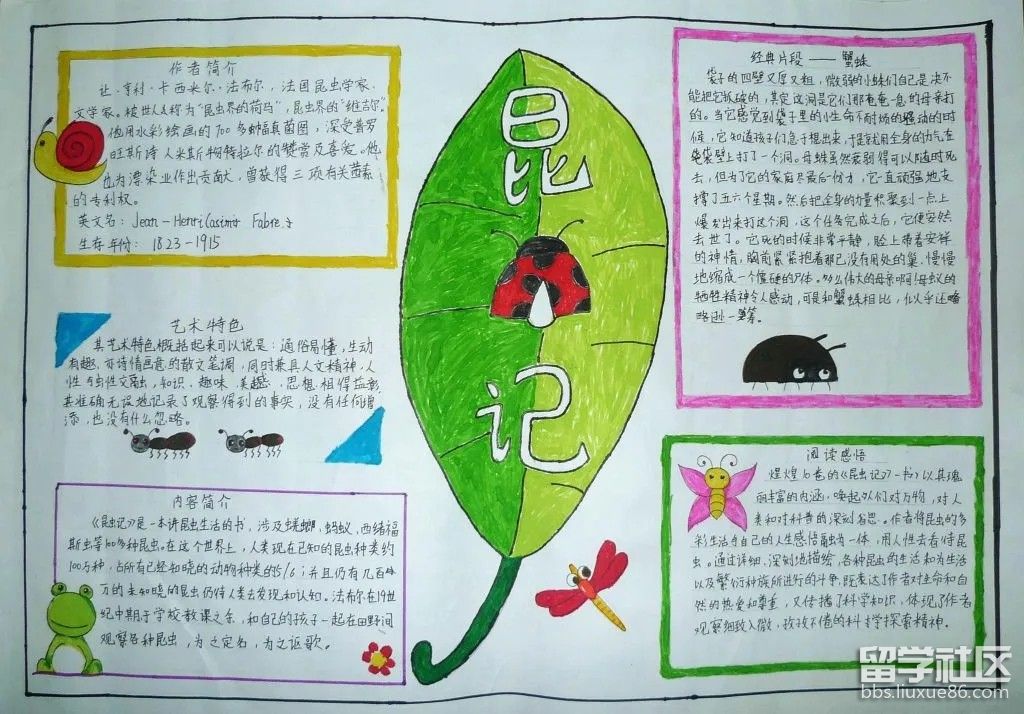 作者简介
让·亨利·卡西米尔·法布尔，法国昆虫学家、
文学家。被世人称为“昆虫界的荷马”，昆虫界的“维吉尔”。
他用水彩绘画的700多幅真菌图，深受普罗
旺斯诗人米斯特拉尔的赞赏及喜爱。他
也为漂染业作出贡献，曾获得三项有关茜素
的专利权。
英文名：Jean-Henri Casimir Fabre
生存年份：1823-1915
艺术特色
其艺术特色概括起来可以说是：通俗易懂，生动
有趣，亦诗情画意的散文笔调，同时兼具人文精神，人
性与虫性交融，知识、趣味、美感、思想相得益彰，
其准确无误地记录了观察得到的事实，没有任何增
添，也没有什么忽略。
内容简介
《昆虫记》是一本讲昆虫生活的书，涉及蜣螂、蚂蚁、西绪福
斯虫等100多种昆虫。在这个世界上，人类现在已知的昆虫种类约
100万种，占所有已经知晓的动物种类的5/6；并且仍有几百
万的未知晓的昆虫仍待人类去发现和认知。法布尔在19世
纪中期于学校教课之余，和自己的孩子一起在田野间
观察各种昆虫，为之定名，为之讴歌。
昆
虫
记
经典片段——蟹蛛
袋子的四壁又厚又粗，微弱的小蛛们自己是决不
能把它抓破的，其实这洞是它们那奄奄一息的母亲打
的。当它感觉到袋子里的小生命不耐烦的骚动的时
候，它知道孩子们急于想出来，于是就用全身的力气在
袋壁上打了一个洞。母蛛虽然衰弱得可以随时死
去，但为了它的家庭尽最后何才，它一直顽强地支
撑了五六个星期。然后把全身的力量积聚到一点上
爆发出来打这个洞，这个任务完成之后，它便安然
去世了。它死的时候非常平静，脸上带着安祥
的神情，胸前紧紧抱着那已没有用处的巢，慢慢
地缩成一个僵硬的尸体。多么伟大的母亲啊！母蚁的
牺牲精神令人感动，可是和蟹蛛相比，似乎还略
略逊一筹。
阅读感悟
煌煌10卷的《昆虫记》一书以其瑰
丽丰富的内涵，唤起人们对万物，对人
类和对科普的深刻省思。作者将昆虫的多
彩生活与自己的人生感悟融为一体，用人性去看待昆
虫。通过详细、深刻地描绘，各种昆虫的生活和为生活
以及繁衍种族所进行的斗争，既表达了作者对生命和自
然的热爱和尊重，又传播了科学知识，体现了作者
观察细致入微，孜孜不倦的科学探索精神。
留学社区
bbs.liuxue86.com